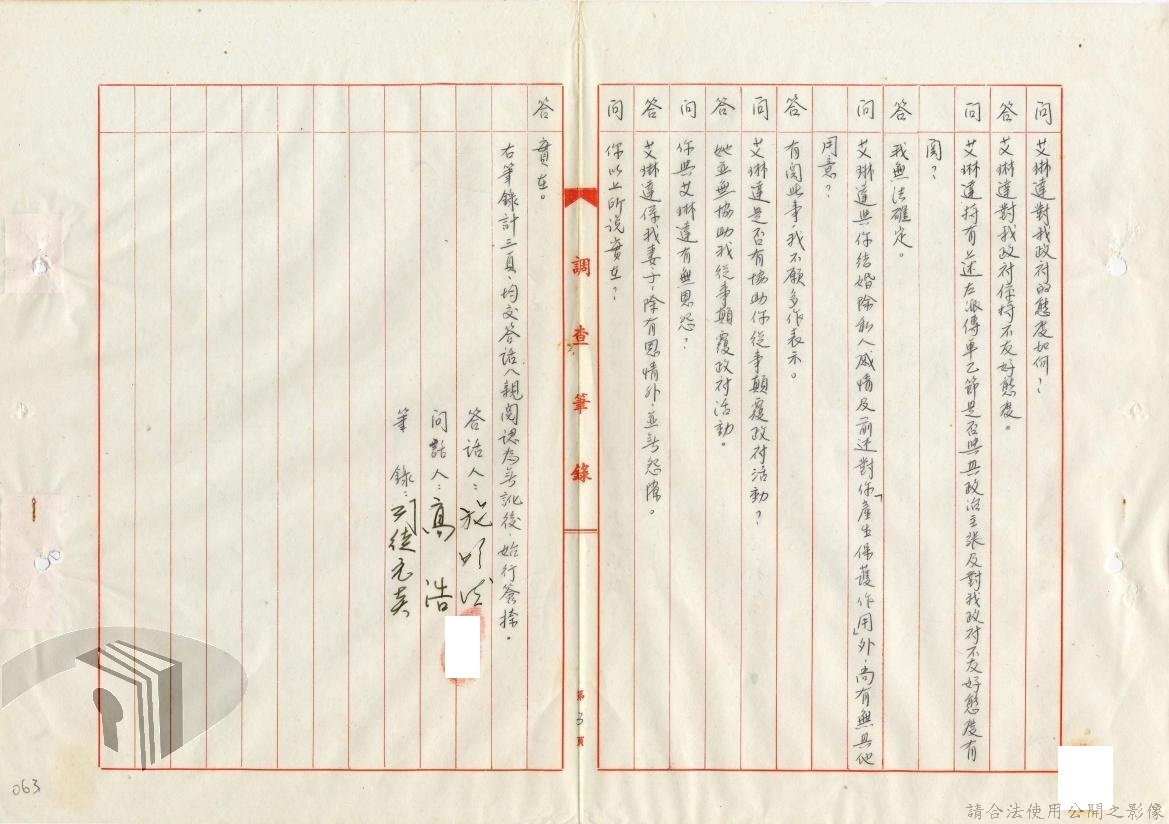 問 艾琳達對我政府的態度如何？
答 艾琳達對我政府保持不友好態度。
問 艾琳達持有上述左派傳單乙節是否與其政治主張反對我政府不友好態度有
關？
答 我無法確定。
問 艾琳達與你結婚除私人感情及前述對你「產生保護作用」外，尚有無其他
用意？
答 有關此事，我不願多作表示。
問 艾琳達是否有協助你從事顛覆政府活動？
答 她並無協助我從事顛覆政府活動。
問 你與艾琳達有無恩怨？
答 艾琳達係我妻子，除有恩情外，並無怨隙。
問 你以上所說實在？
調查筆錄
第3頁
答 實在。
右筆錄計三頁，均交答話人親閱認為無訛後，始行簽捺。
答話人：施明德
問話人：高浩
筆錄：司徒元
063
請合法使用公開之影像